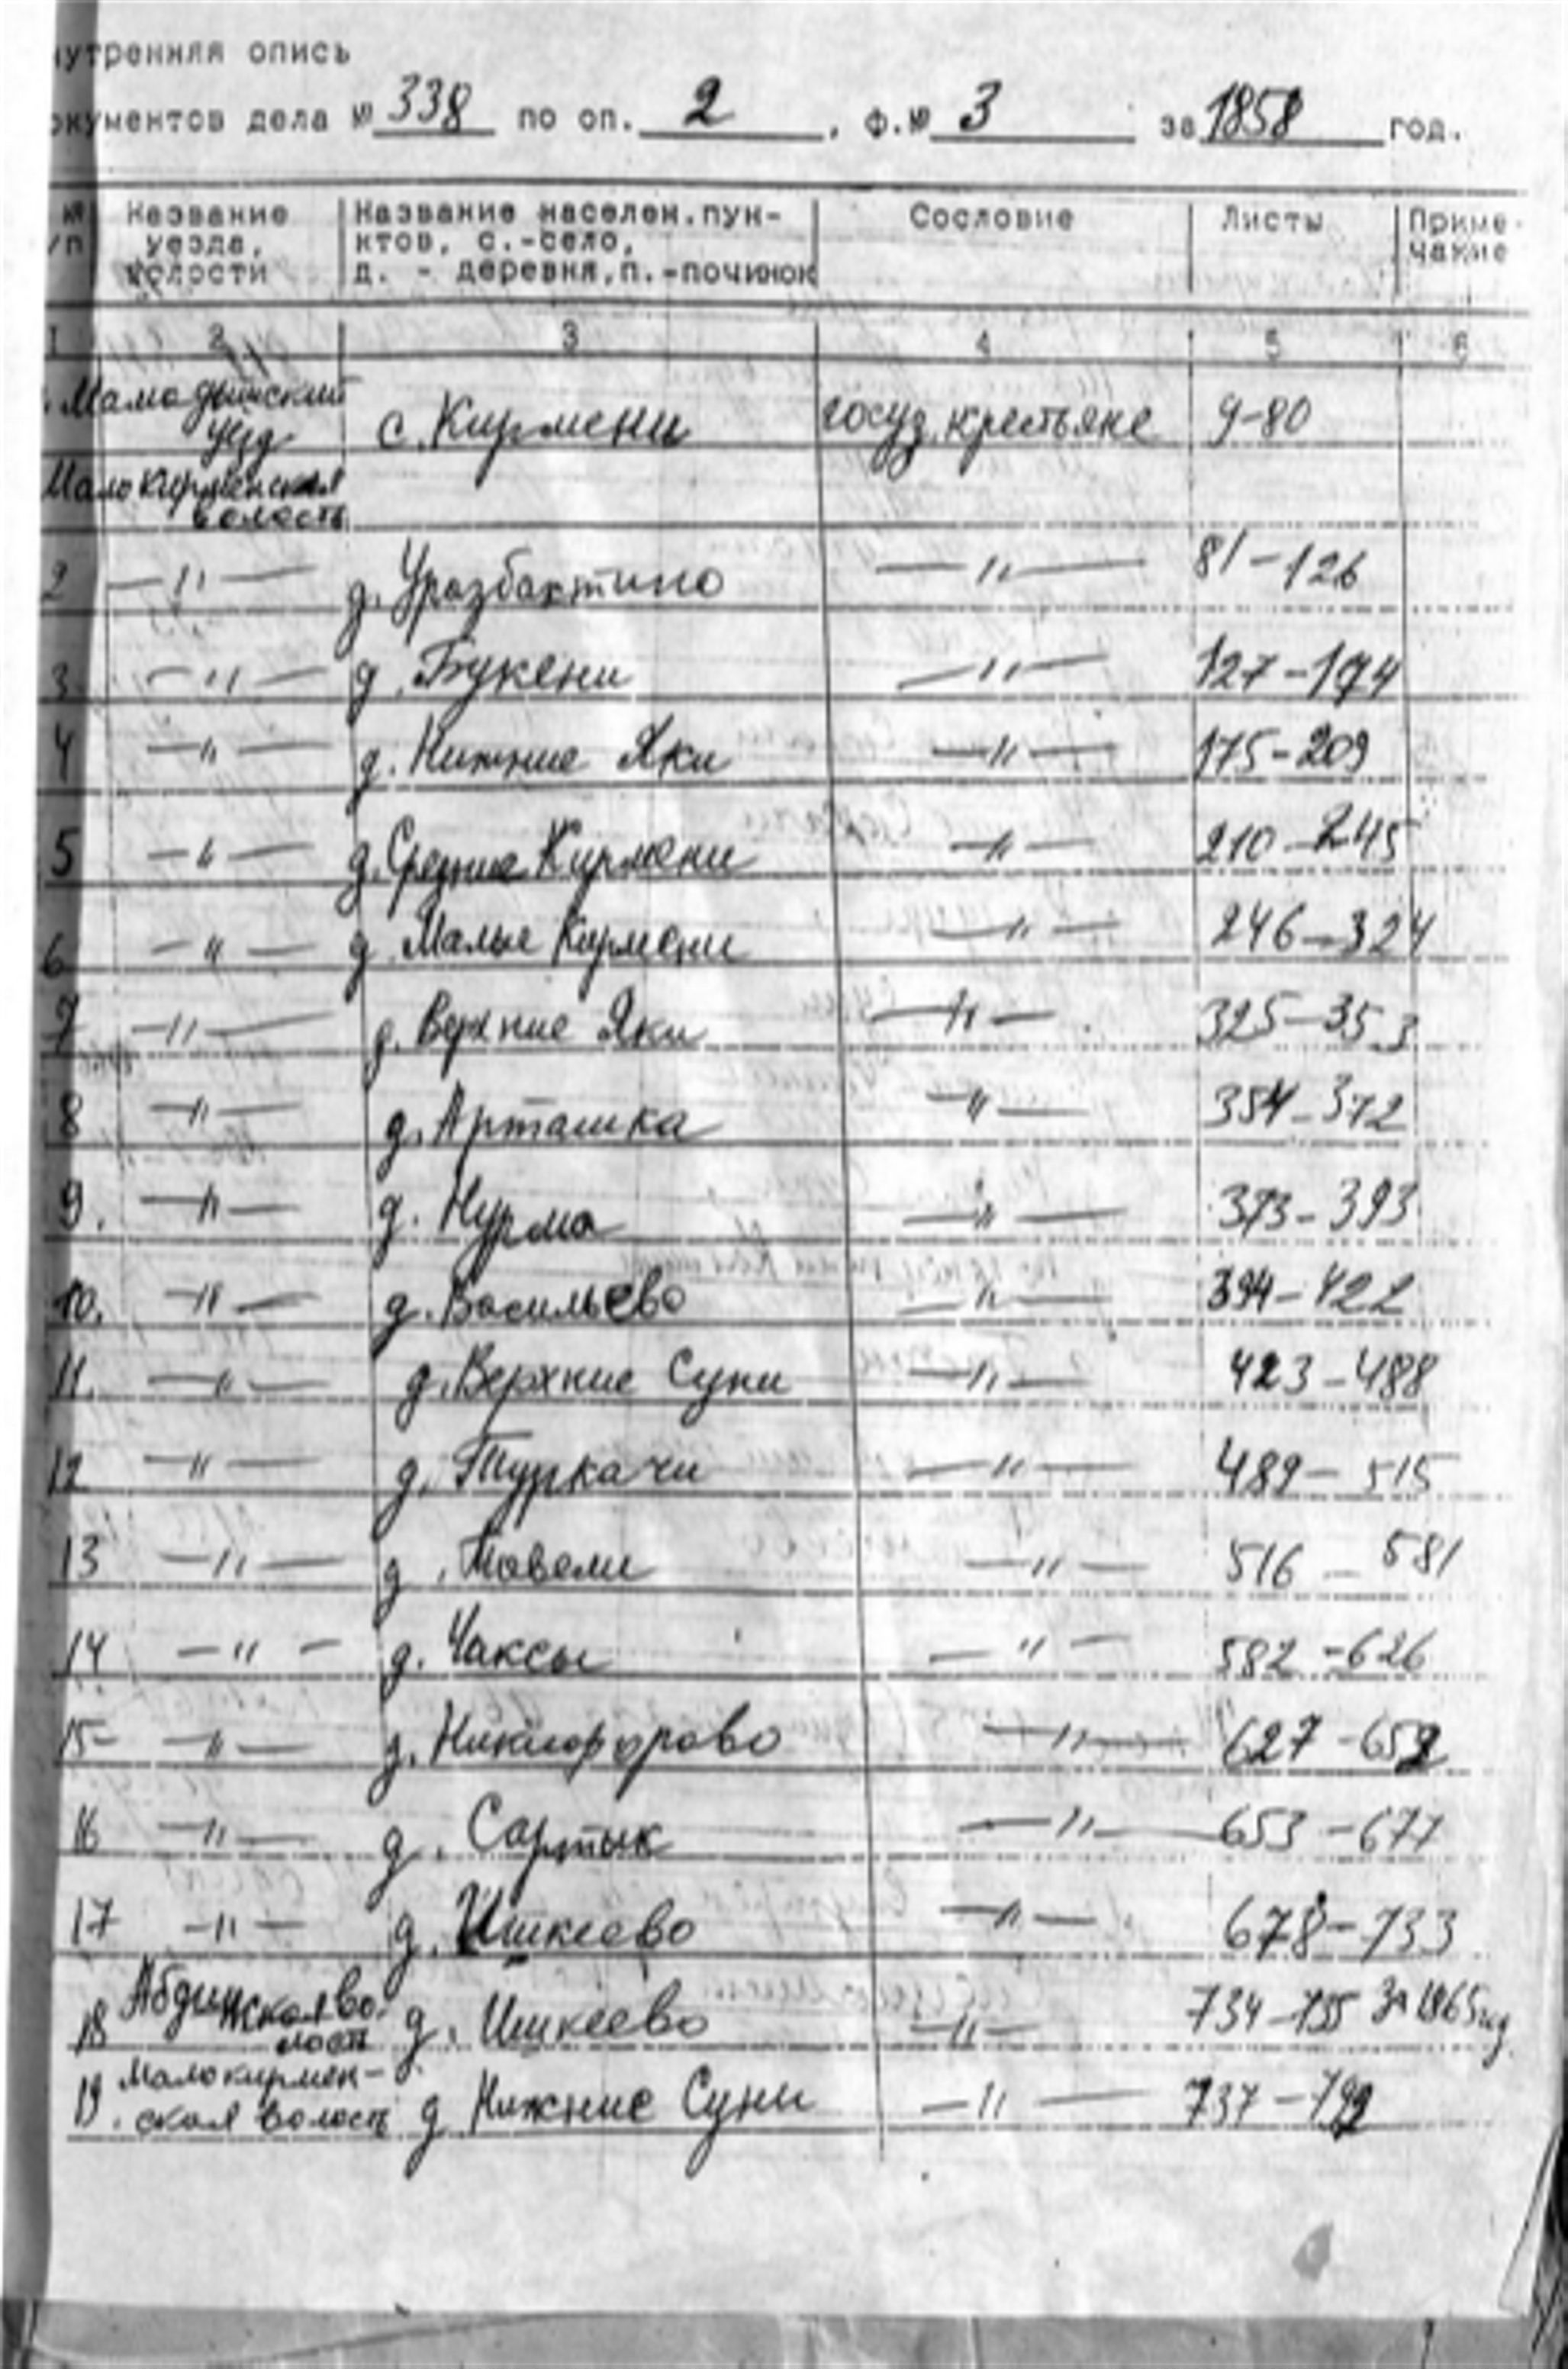 нутренняя опись
окументов дела № 338 по оп. 2, ф.№ 3 за 1858 год.
№ Название Название населен.пун- Сословие Листы Приме-
/п уезда, ктов, с.-село, чание
волости д. - деревня,п.-починок
1 2 3 4 5 6
Мамадышский
уезд с. Кирмени госуд. крестьяне 9-80
Малокирменская
волость
2 —"— д. Уразбахтино —"— 81-126
3 —"— д. Букени —"— 127-174
4 —"— д. Нижние Яки —"— 175-209
5 —"— д. Средние Кирмени —"— 210-245
6 —"— д. Малые Кирмени —"— 246-324
7 —"— д. Верхние Яки —"— 325-353
8 —"— д. Арташка —"— 354-372
9. —"— д. Нурма —"— 373-393
10. —"— д. Васильево —"— 394-422
11. —"— д. Верхние Суни —"— 423-488
12 —"— д. Туркачи —"— 489-515
13 —"— д. Тавели —"— 516-581
14 —"— д. Чаксы —"— 582-626
15 —"— д. Никифорово —"— 627-652
16 —"— д. Сартык —"— 653-677
17 —"— д. Ишкеево —"— 678-733
Абдинская во-
18 лость д. Ишкеево —"— 734-735 за 1865 год
Малокирмен-
19. ская волость д Нижние Суни —"— 737-